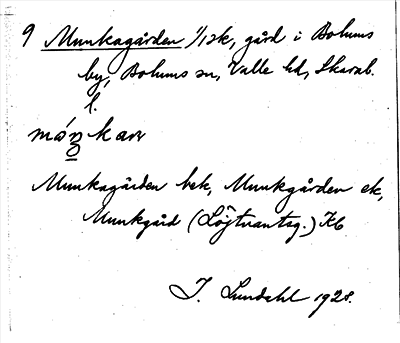 9 Munkagården 1/1 sk, gård i Bolums
by, Bolums sn, Valle hd, Skarab.
l.
Munkagården bek, Munkgården ek,
Munkgård (Löjtnantsg.) Kb
I. Lundahl 1928.